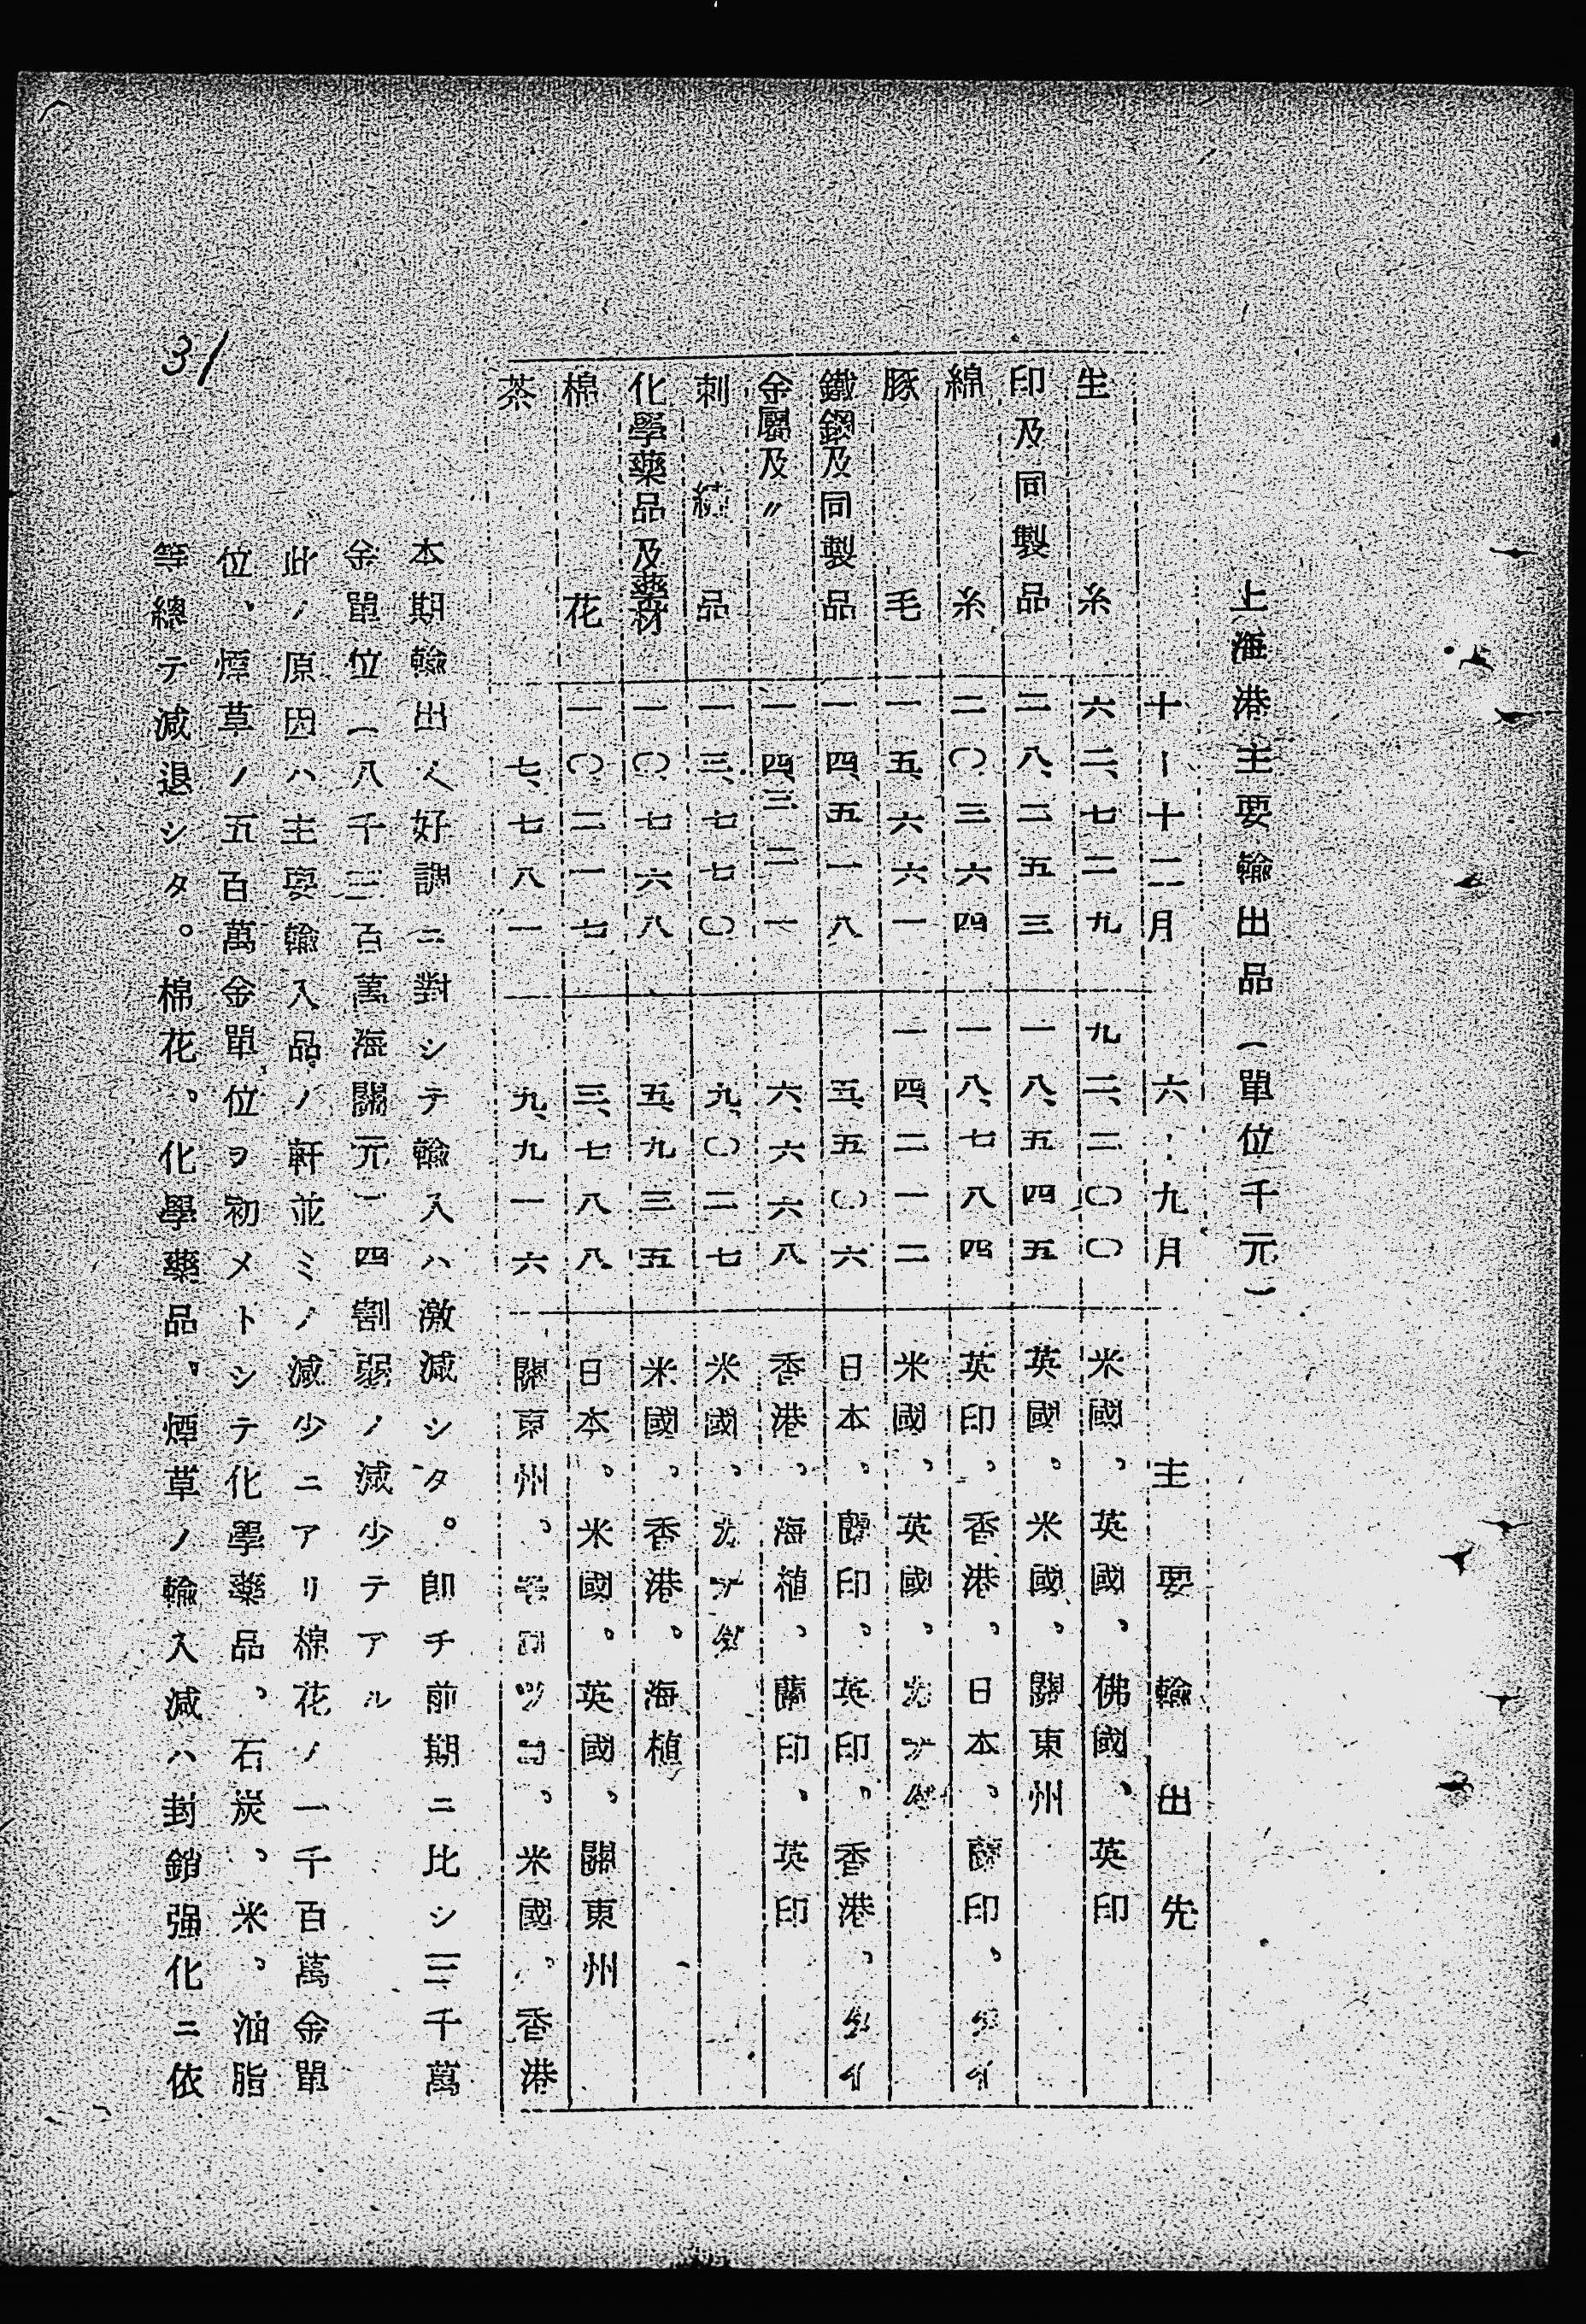 上海港主要輸出品(單位千元)
十ー十二月 六ー九月 主要輸出先
生糸 六二、七二九 九二、二〇〇 米國、英國、佛國、英印
印及同製品 二八、二五三 一八、五四五 英國、米國、關東州
綿糸 二〇、三六四 一八、七八四 英印、香港、日本、蘭印、
豚毛 一五、六六一 一四、二一二 米國、英國、
鐵鋼及同製品 一四、五一八 五、五〇六 日本、蘭印、英印、香港、
金屬及〃 一四、三二一 六、六六八 香港、海植、蘭印、英印
刺繍品 一三、七七〇 九、〇二七 米國、
化學藥品及藥材 一〇、七六八 五、九三五 米國、香港、海植
棉花 一〇、二一七 三、七八八 日本、米國、英國、關東州
茶 七、七八一 九、九一六 關東州、米國、香港
本期輸出ノ好調ニ對シテ輸入ハ激減シタ。卽チ前期ニ比シ三千萬
金單位(八千三百萬海關元)四割弱ノ減少テアル
此ノ原因ハ主要輸入品ノ軒並ミノ減少ニアリ棉花ノ一千百萬金單
位、煙草ノ五百萬金單位ヲ初メトシテ化學藥品、石炭、米、油脂
等總テ減退シタ。棉花、化學藥品、煙草ノ輸入減ハ封鎖强化ニ依
31